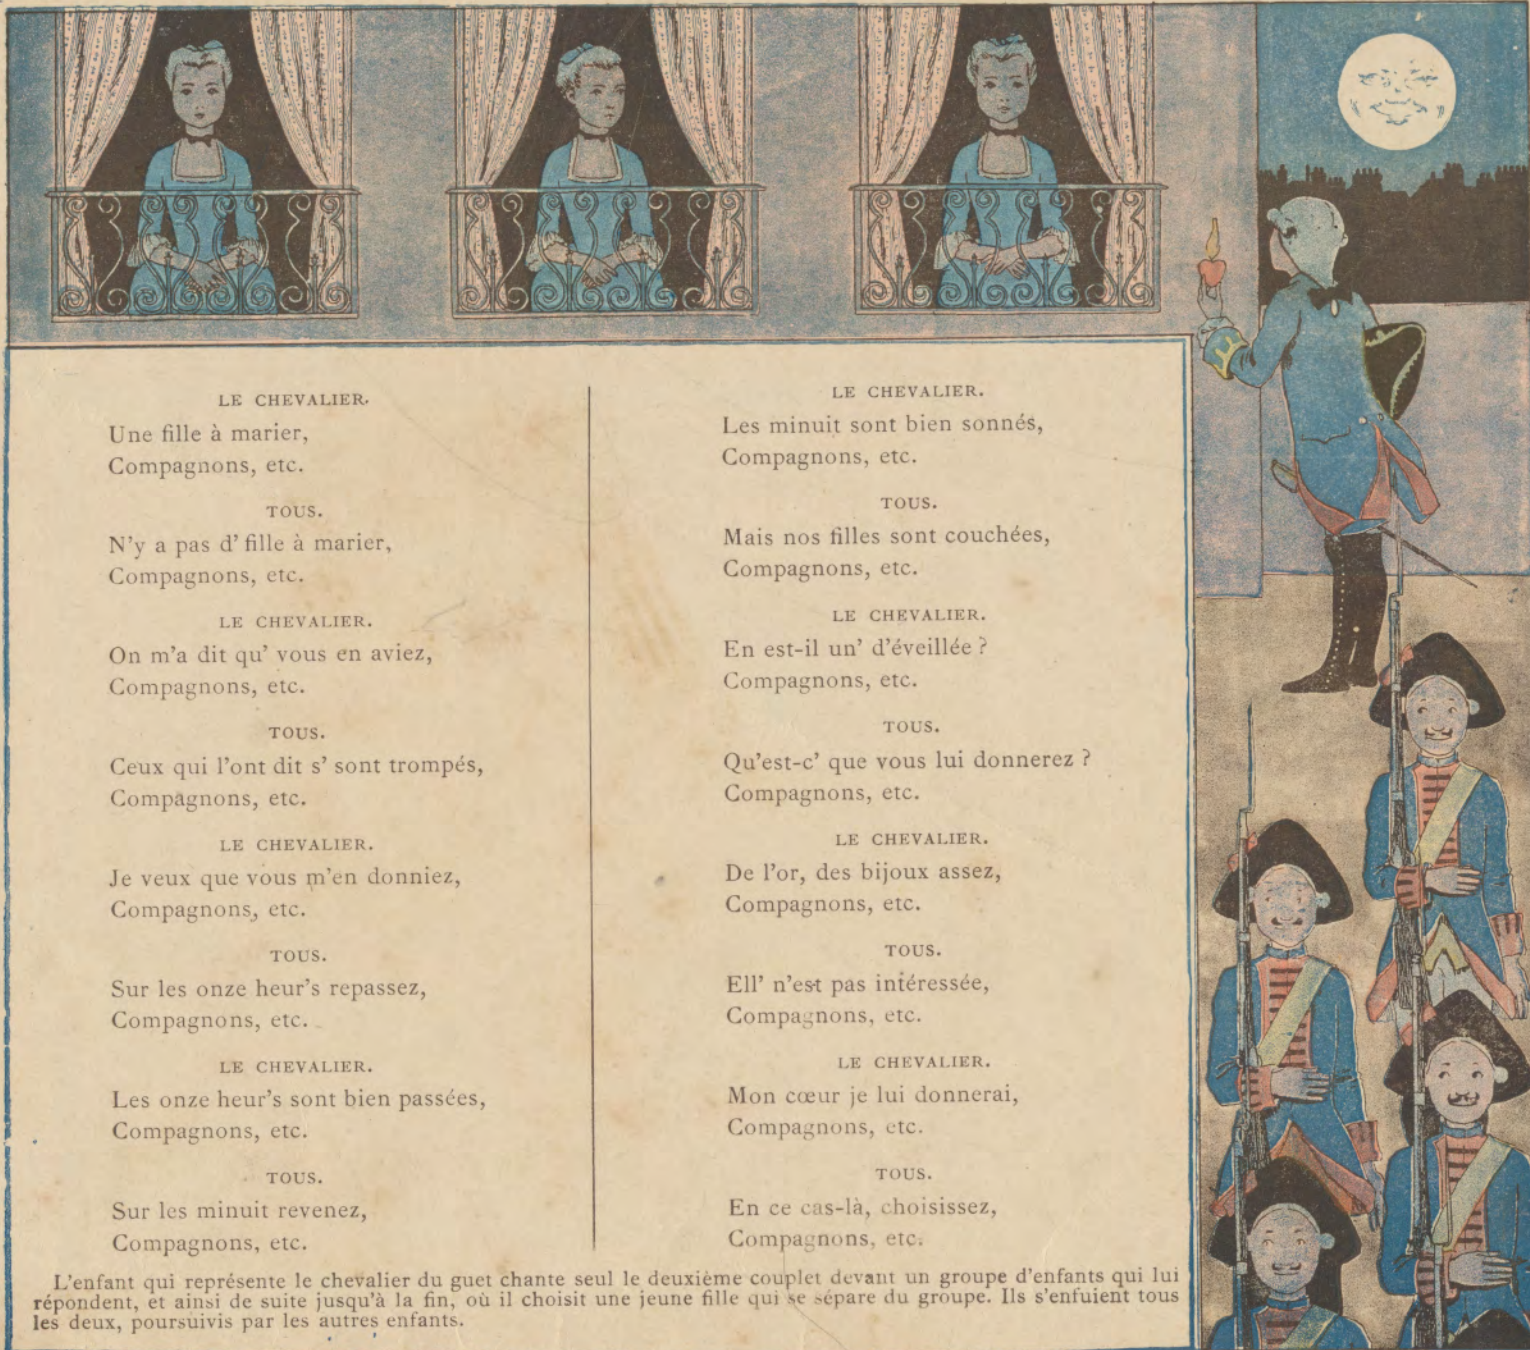 LE CHEVALIER.
Une fille à marier,
Compagnons, etc.
TOUS.
N'y a pas d' fille à marier,
Compagnons, etc.
LE CHEVALIER.
On m'a dit qu' vous en aviez,
Compagnons, etc.
TOUS.
Ceux qui l'ont dit s' sont trompés,
Compagnons, etc.
LE CHEVALIER.
Je veux que vous m'en donniez,
Compagnons, etc.
TOUS.
Sur les onze heur's repassez,
Compagnons, etc.
LE CHEVALIER.
Les onze heur's sont bien passées,
Compagnons, etc.
TOUS.
Sur les minuit revenez,
Compagnons, etc.
LE CHEVALIER.
Les minuit sont bien sonnés,
Compagnons, etc.
TOUS.
Mais nos filles sont couchées,
Compagnons, etc.
LE CHEVALIER.
En est-il un' d'éveillée ?
Compagnons, etc.
TOUS.
Qu'est-c' que vous lui donnerez ?
Compagnons, etc.
LE CHEVALIER.
De l'or, des bijoux assez,
Compagnons, etc.
TOUS.
Ell' n'est pas intéressée,
Compagnons, etc.
LE CHEVALIER.
Mon cœur je lui donnerai,
Compagnons, etc.
TOUS.
En ce cas-là, choisissez,
Compagnons, etc.
L'enfant qui représente le chevalier du guet chante seul le deuxième couplet devant un groupe d'enfants qui lui
répondent, et ainsi de suite jusqu'à la fin, où il choisit une jeune fille qui se sépare du groupe. Ils s'enfuient tous
les deux, poursuivis par les autres enfants.